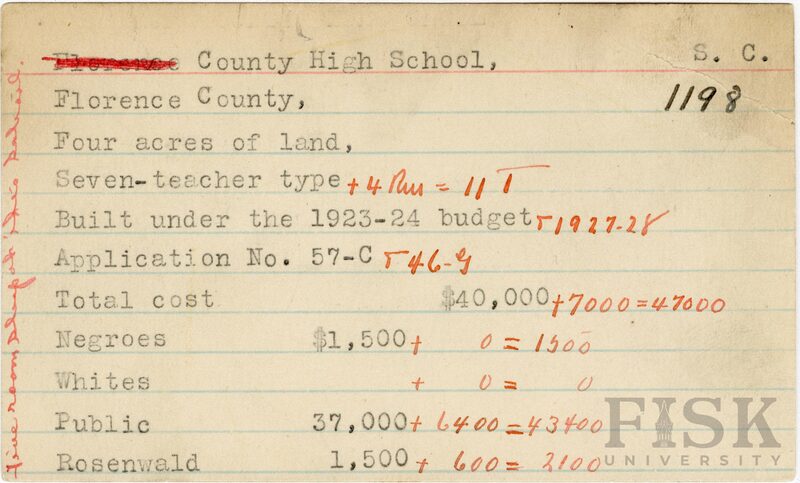 Florence County High School, S. C.
Florence County, 1198
Four acres of land,
Seven-teacher type + 4 Rm = 11 T
Built under the 1923-24 budget + 1927-28
Application No. 57-C + 46-G
Total cost $40,000 + 7000 = 47000
Negroes $1,500 + 0 = 1500
Whites + 0 = 0
Public 37,000 + 6400 = 43400
Rosenwald 1,500 + 600 = 2100
Five room shop at this school.
FISK
UNIVERSITY